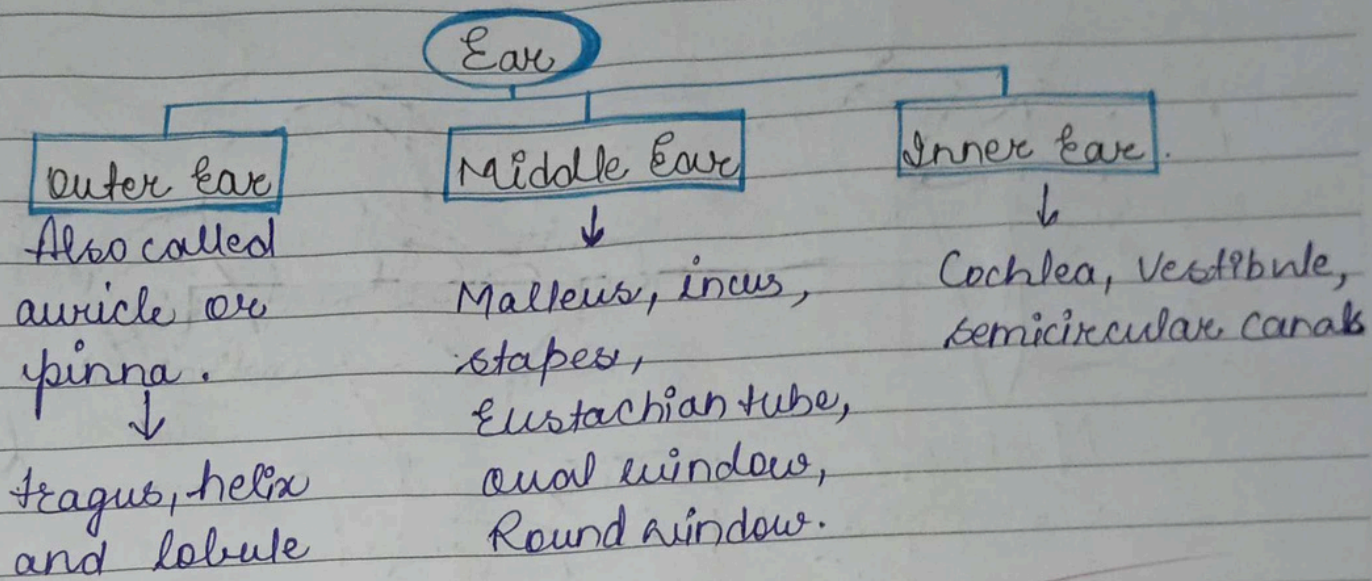 Ear
Outer Ear
Also called
auricle or
pinna.
tragus, helix
and lobule
Middle Ear
Malleus, incus,
stapes,
Eustachian tube,
oval window,
Round window.
Inner Ear.
Cochlea, Vestibule,
semicircular canals